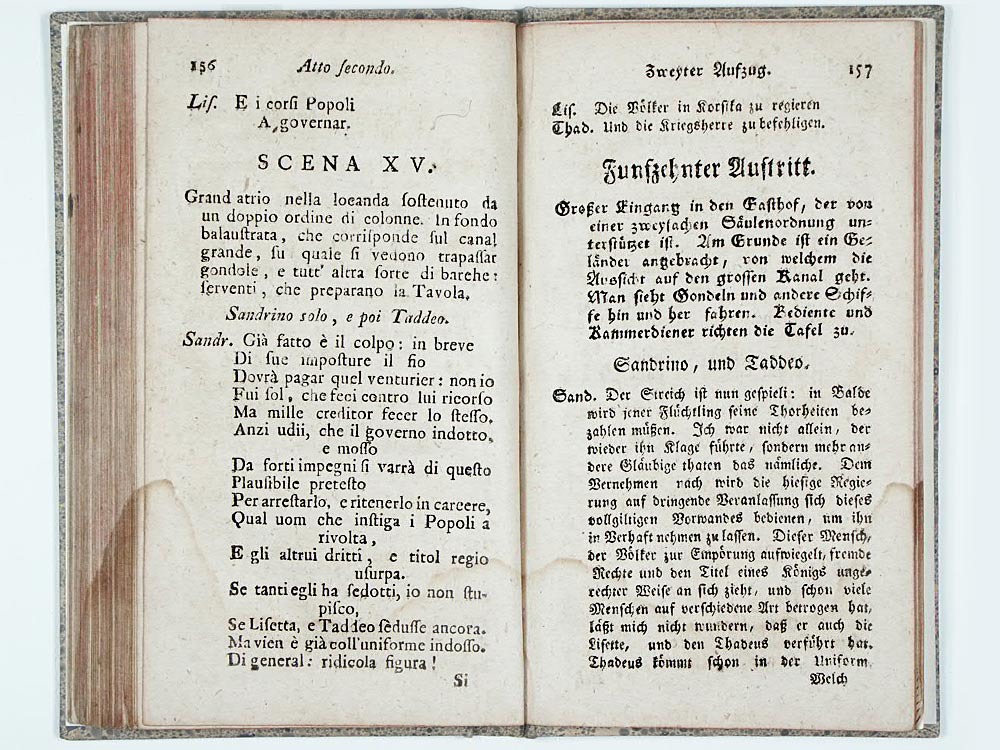 156 Atto secondo.
Liſ. E i corſi Popoli
A governar.
SCENA XV.
Grand atrio nella locanda ſoſtenuto da
un doppio ordine di colonne. In fondo
balauſtrata, che corriſponde ſul canal
grande, ſu quale ſi vedono trapaſſar
gondole, e tutt' altra ſorte di barche:
ſerventi, che preparano la Tavola.
Sandrino solo, e poi Taddeo.
Sandr. Già fatto è il colpo: in breve
Di ſue impoſture il fio
Dovrà pagar quel venturier: non io
Fui ſol, che feci contro lui ricorſo
Ma mille creditor fecer lo ſteſſo.
Anzi udii, che il governo indotto,
e moſſo
Da forti impegni ſi varrà di queſto
Plauſibile preteſto
Per arreſtarlo, e ritenerlo in carcere,
Qual uom che inſtiga i Popoli a
rivolta,
E gli altrui dritti, e titol regio
uſurpa.
Se tanti egli ha ſedotti, io non ſtu-
piſco,
Se Liſetta, e Taddeo ſeduſſe ancora.
Ma vien è già coll'uniforme indoſſo.
Di general: ridicola figura!
Si
Zweyter Aufzug. 157
Liſ. Die Völker in Korſika zu regieren
Thad. Und die Kriegsherre zu befehligen.
Funfzehnter Auftritt.
Großer Eingang in den Gaſthof, der von
einer zweyfachen Säulenordnung un-
terſtützet iſt. Am Grunde iſt ein Ge-
länder angebracht, von welchem die
Ausſicht auf den groſſen Kanal geht.
Man ſieht Gondeln und andere Schif-
fe hin und her fahren. Bediente und
Kammerdiener richten die Tafel zu.
Sandrino, und Taddeo.
Sand. Der Streich iſt nun geſpielt: in Balde
wird jener Flüchtling ſeine Thorheiten be-
zahlen müßen. Ich war nicht allein, der
wieder ihn Klage führte, ſondern mehr an-
dere Gläubige thaten das nämliche. Dem
Vernehmen nach wird die hieſige Regie-
rung auf dringende Veranlaſſung ſich dieſes
vollgiltigen Vorwandes bedienen, um ihn
in Verhaft nehmen zu laſſen. Dieſer Menſch,
der Völker zur Empörung aufwiegelt, fremde
Rechte und den Titel eines Königs unge-
rechter Weiſe an ſich zieht, und ſchon viele
Menſchen auf verſchiedene Art betrogen hat,
läßt mich nicht wundern, daß er auch die
Liſette, und den Thadeus verführt hat.
Thadeus kömmt ſchon in der Uniform
Welch